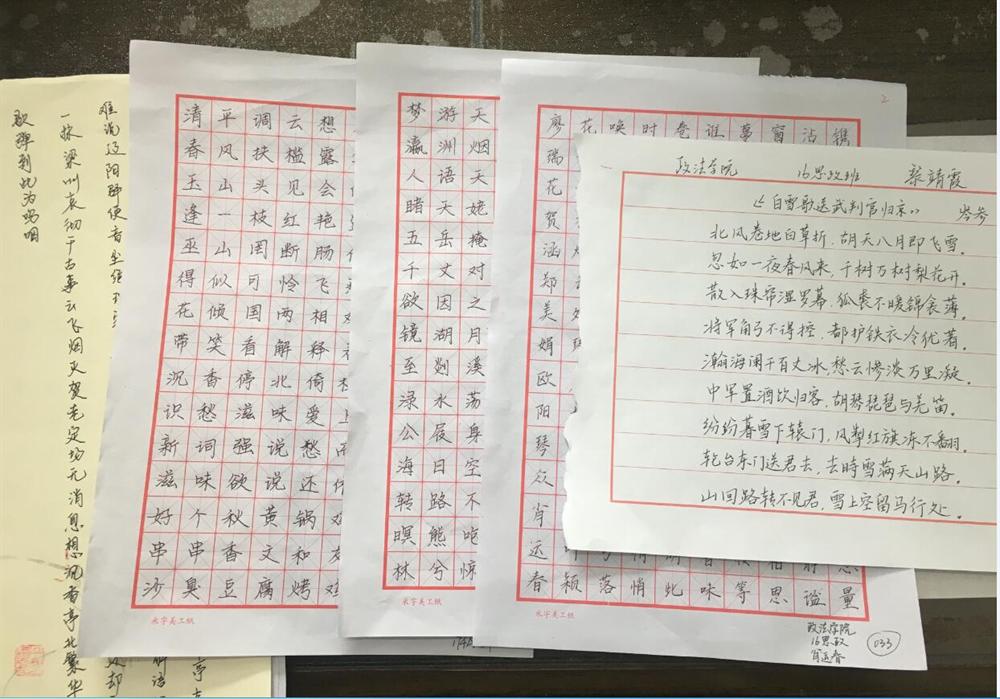 难说辽阳师便音尘绝
一抹梁州哀彻千古事云飞烟灭贺老定场无消息想沉香亭北繁华
歌弹到此为呜咽
清平调云想
春风扶槛露
玉山头见会
逢一枝红艳
巫山因断肠
得似可怜飞
花倾国两相
带笑看解释
沉香停北倚
识愁滋味爱上
新词强说愁而
滋味欲说还
好个秋黄锅
串串香文和
沙臭豆腐烤鸡
米字美工纸
梦游天
瀛洲烟
人语天
睹天姥
五岳掩
千丈对
欲因之
镜湖月
至剡溪
渌水荡
公屐身
海日空
转路不
暝熊咆
林兮惊
米字美工纸
2
廖花唤时卷谁幕窗沾镌
瑞
花
贺
涵
郑
美
娟
欧
阳
琴
众
肖
远
春颖落悄此味等思谧量
米字美工纸
政法学院
16思政
肖远春
033
政法学院 16思政班 蔡靖霞
《白雪歌送武判官归京》 岑参
北风卷地白草折，胡天八月即飞雪。
忽如一夜春风来，千树万树梨花开。
散入珠帘湿罗幕，狐裘不暖锦衾薄。
将军角弓不得控，都护铁衣冷犹着。
瀚海阑干百丈冰，愁云惨淡万里凝。
中军置酒饮归客，胡琴琵琶与羌笛。
纷纷暮雪下辕门，风掣红旗冻不翻。
轮台东门送君去，去时雪满天山路。
山回路转不见君，雪上空留马行处。